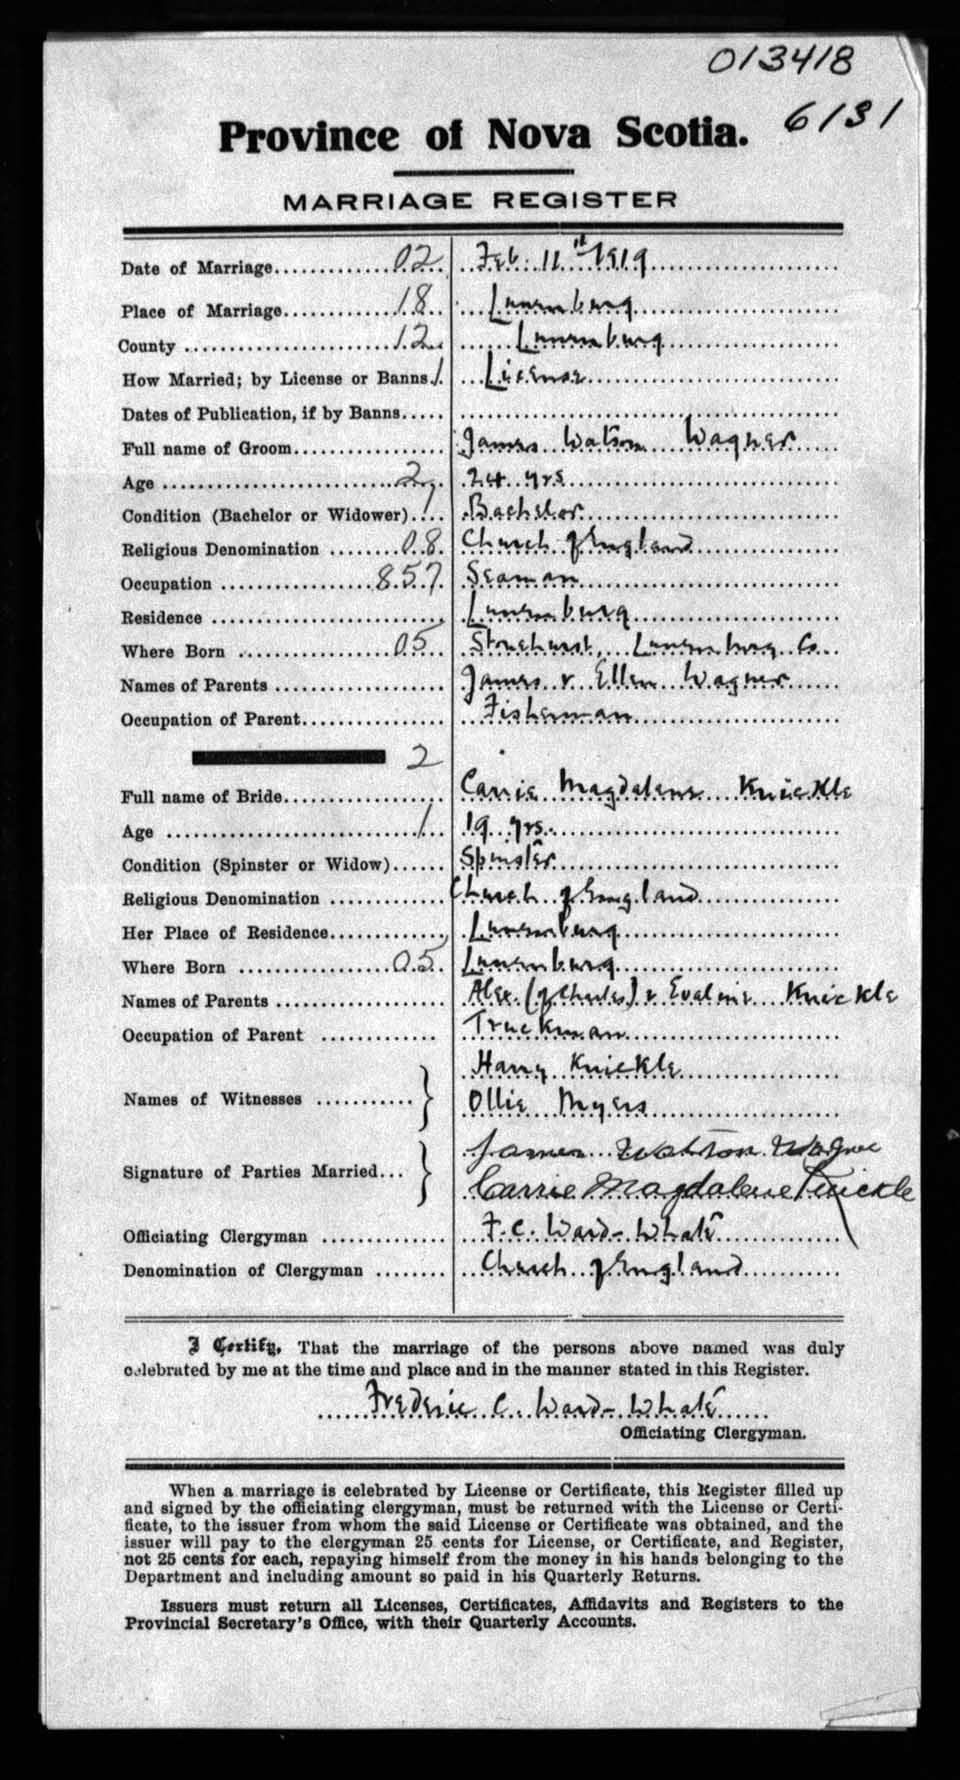 013418
6131
Province of Nova Scotia.
MARRIAGE REGISTER
Date of Marriage 02 Feb. 11th 1919
Place of Marriage 18 Lunenburg
County 12 Lunenburg
How Married; by License or Banns 1 License
Dates of Publication, if by Banns
Full name of Groom James Watson Wagner
Age 2 24 yrs
Condition (Bachelor or Widower) 1 Bachelor
Religious Denomination 08 Church of England
Occupation 857 Seaman
Residence Lunenburg
Where Born 05 Stonehurst, Lunenburg Co.
Names of Parents James & Ellen Wagner
Occupation of Parent Fisherman
2
Full name of Bride Carrie Magdalene Knickle
Age 1 19 yrs.
Condition (Spinster or Widow) Spinster
Religious Denomination Church of England
Her Place of Residence Lunenburg
Where Born 05 Lunenburg
Names of Parents Alex. (of Charles) & Evaline Knickle
Occupation of Parent Truckman
Harry Knickle
Names of Witnesses } Ollie Myers
James Watson Wagner
Signature of Parties Married } Carrie Magdalene Knickle
Officiating Clergyman F. C. Ward-Whate
Denomination of Clergyman Church of England
I Certify, That the marriage of the persons above named was duly
celebrated by me at the time and place and in the manner stated in this Register.
Frederic C. Ward-Whate
Officiating Clergyman.
When a marriage is celebrated by License or Certificate, this Register filled up
and signed by the officiating clergyman, must be returned with the License or Certi-
ficate, to the issuer from whom the said License or Certificate was obtained, and the
issuer will pay to the clergyman 25 cents for License, or Certificate, and Register,
not 25 cents for each, repaying himself from the money in his hands belonging to the
Department and including amount so paid in his Quarterly Returns.
Issuers must return all Licenses, Certificates, Affidavits and Registers to the
Provincial Secretary's Office, with their Quarterly Accounts.